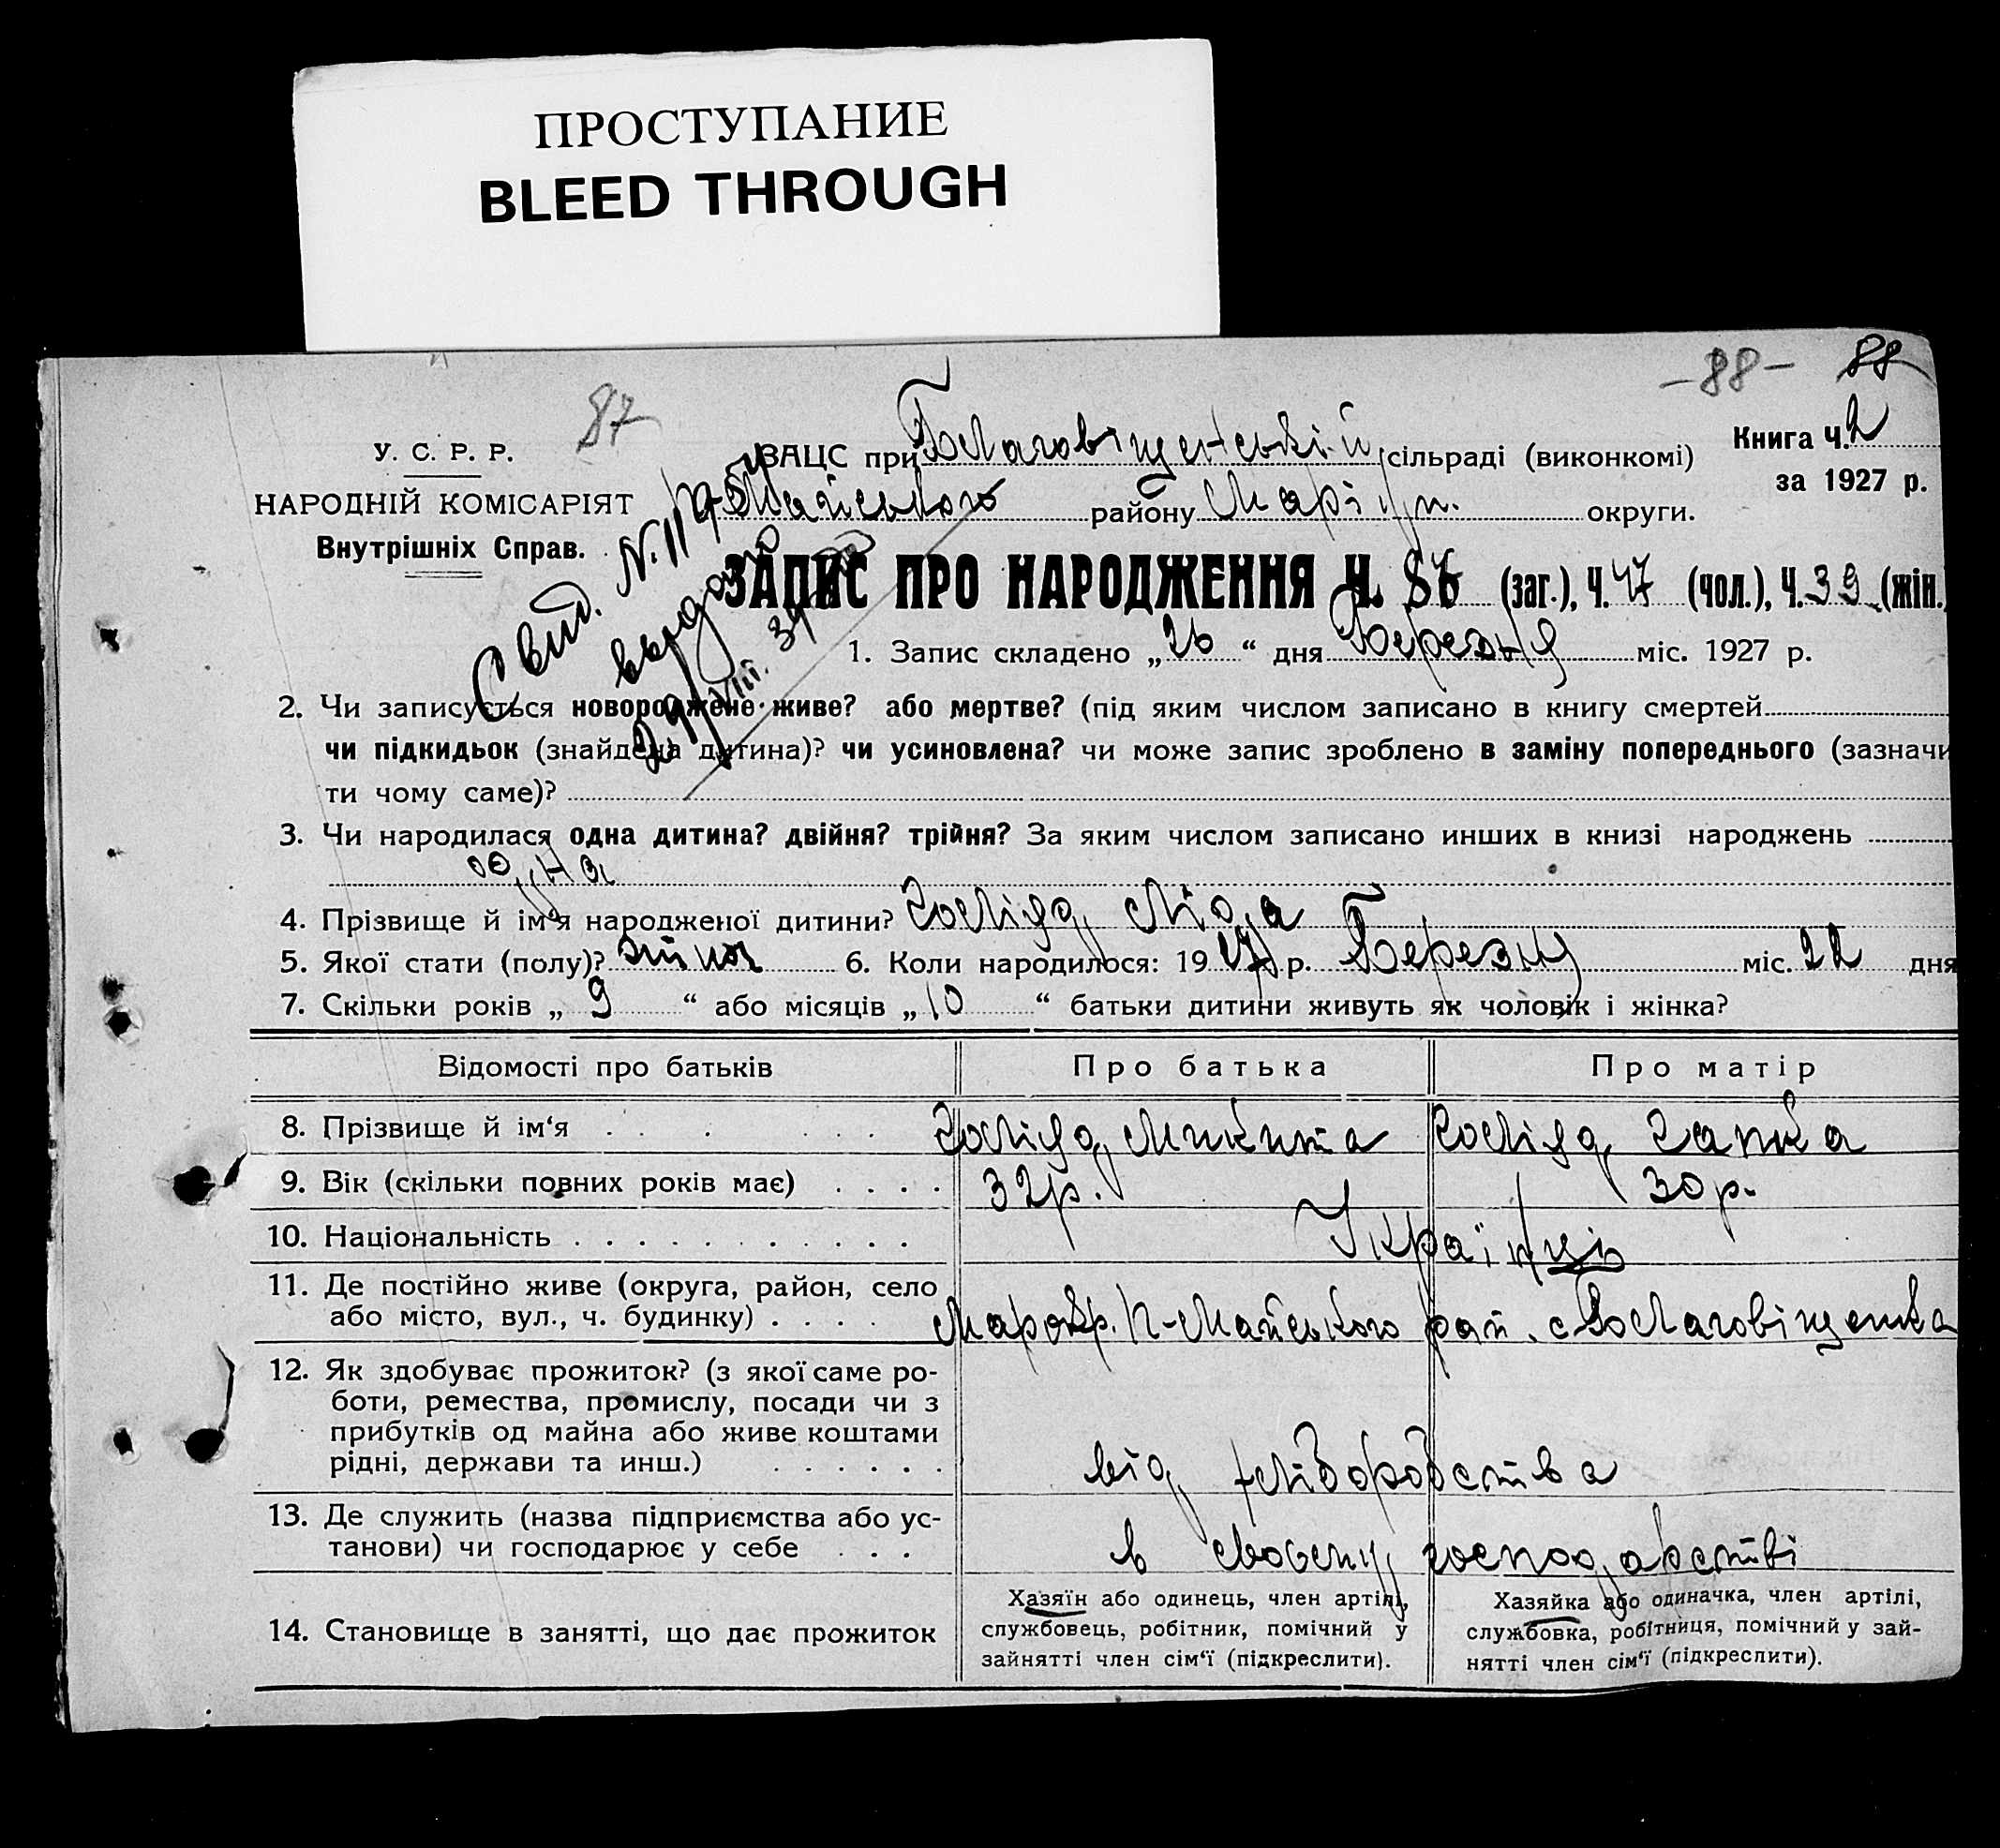 ПРОСТУПАНИЕ
BLEED THROUGH
-88- 88
87
У. С. Р. Р.
НАРОДНІЙ КОМІСАРІЯТ
Внутрішніх Справ.
ЗАЦС при Благовіщенській сільраді (виконкомі)
Майського району Маріуп. округи.
Книга Ч. 2
за 1927 р.
Свид.
выдано
ЗАПИС ПРО НАРОДЖЕННЯ Ч. 86 (заг.), Ч. 47 (чол.), Ч. 39 (жін.)
1. Запис складено „26“ дня Березня міс. 1927 р.
2. Чи записується новороджене живе? або мертве? (під яким числом записано в книгу смертей
чи підкидьок (знайдена дитина)? чи усиновлена? чи може запис зроблено в заміну попереднього (зазначи
ти чому саме)?
3. Чи народилася одна дитина? двійня? трійня? За яким числом записано инших в книзі народжень
одна
4. Прізвище й ім'я народженої дитини? Голіяд Ліда
5. Якої стати (полу)? жіноч 6. Коли народилося: 1927 р. Березня міс. 22 дня
7. Скільки років „9“ або місяців „10“ батьки дитини живуть як чоловік і жінка?
Відомості про батьків Про батька Про матір
8. Прізвище й ім'я . . . . . . Голіяд Микита Голіяд Гапка
9. Вік (скільки повних років має) . . . . 32 р. 30 р.
10. Національність . . . . . . . . . . . Українці
11. Де постійно живе (округа, район, село
або місто, вул., ч. будинку) . . . . Марокр. П-Майського рай. с. Благовіщенка
12. Як здобуває прожиток? (з якої саме ро-
боти, ремества, промислу, посади чи з
прибутків од майна або живе коштами
рідні, держави та инш.) . . . . . . від хлібородства
13. Де служить (назва підприємства або ус-
танови) чи господарює у себе . . . в своєму господарстві
14. Становище в занятті, що дає прожиток
Хазяїн або одинець, член артілі,
службовець, робітник, помічний у
зайнятті член сім'ї (підкреслити).
Хазяйка або одиначка, член артілі,
службовка, робітниця, помічний у зай-
нятті член сім'ї (підкреслити).